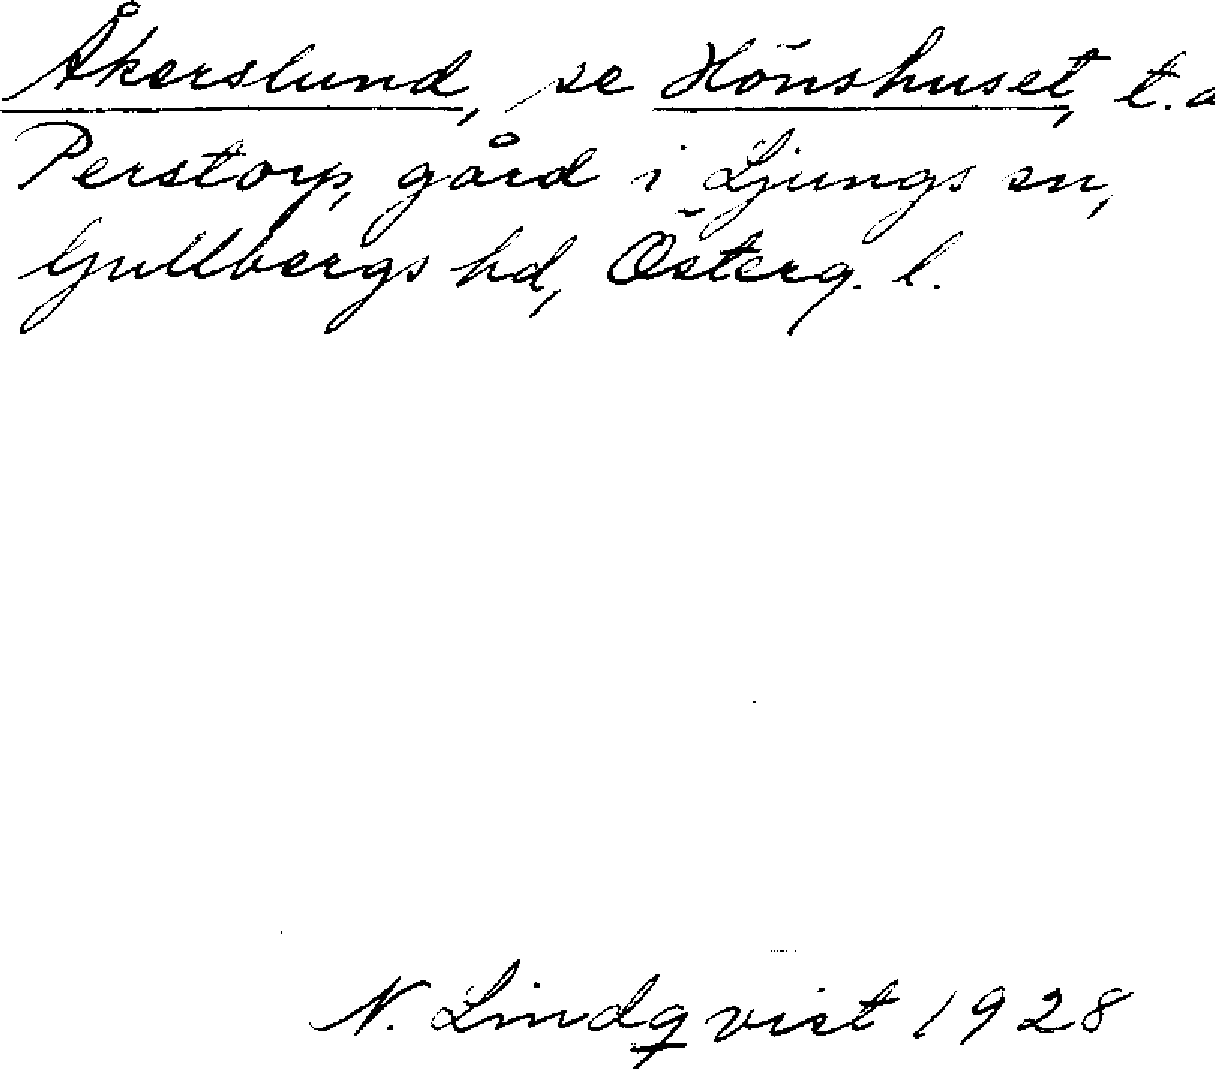 Åkerslund, se Hönshuset, t.a
Perstorp, gård i Ljungs sn,
Gullbergs hd, Österg. l.
N. Lindqvist 1928